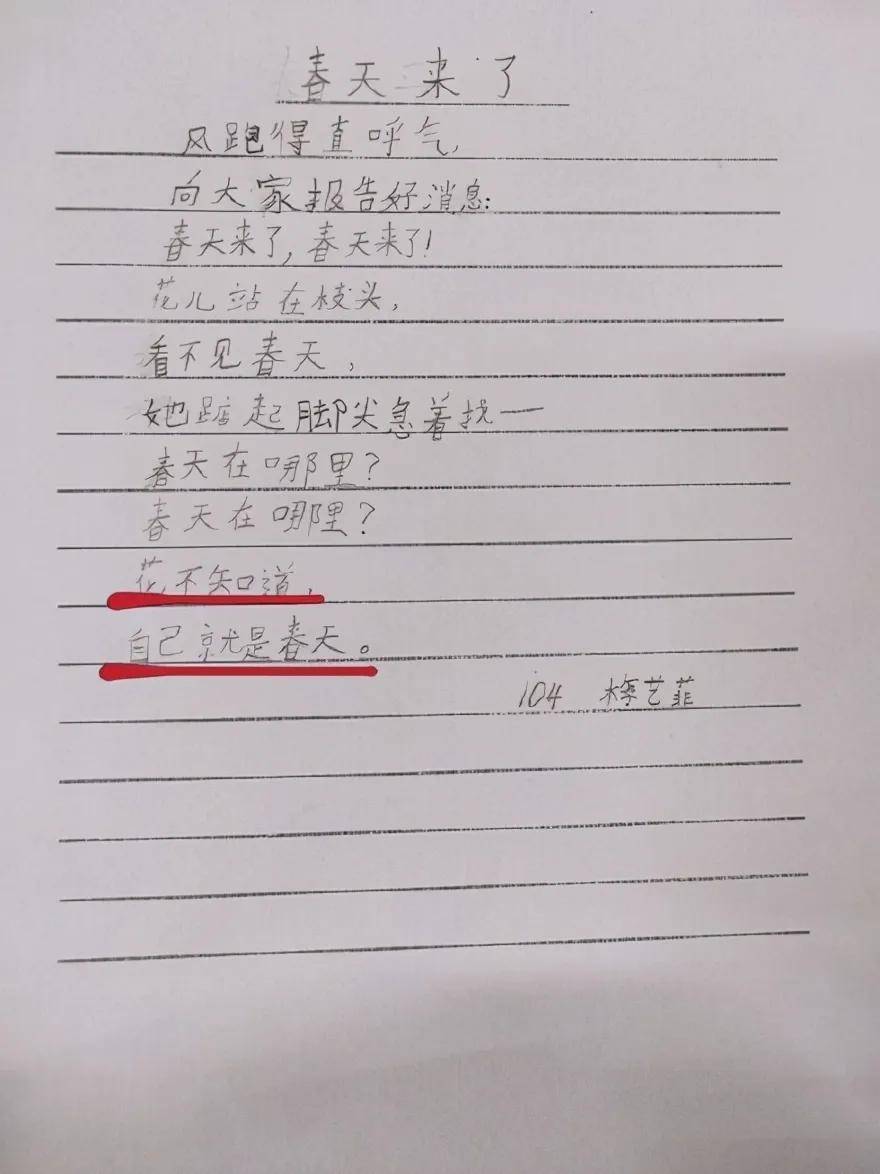 春天来了
风跑得直呼气,
向大家报告好消息:
春天来了,春天来了!
花儿站在枝头,
看不见春天,
她踮起脚尖急着找一
春天在哪里?
春天在哪里?
花不知道,
自己就是春天。
104 梅艺菲